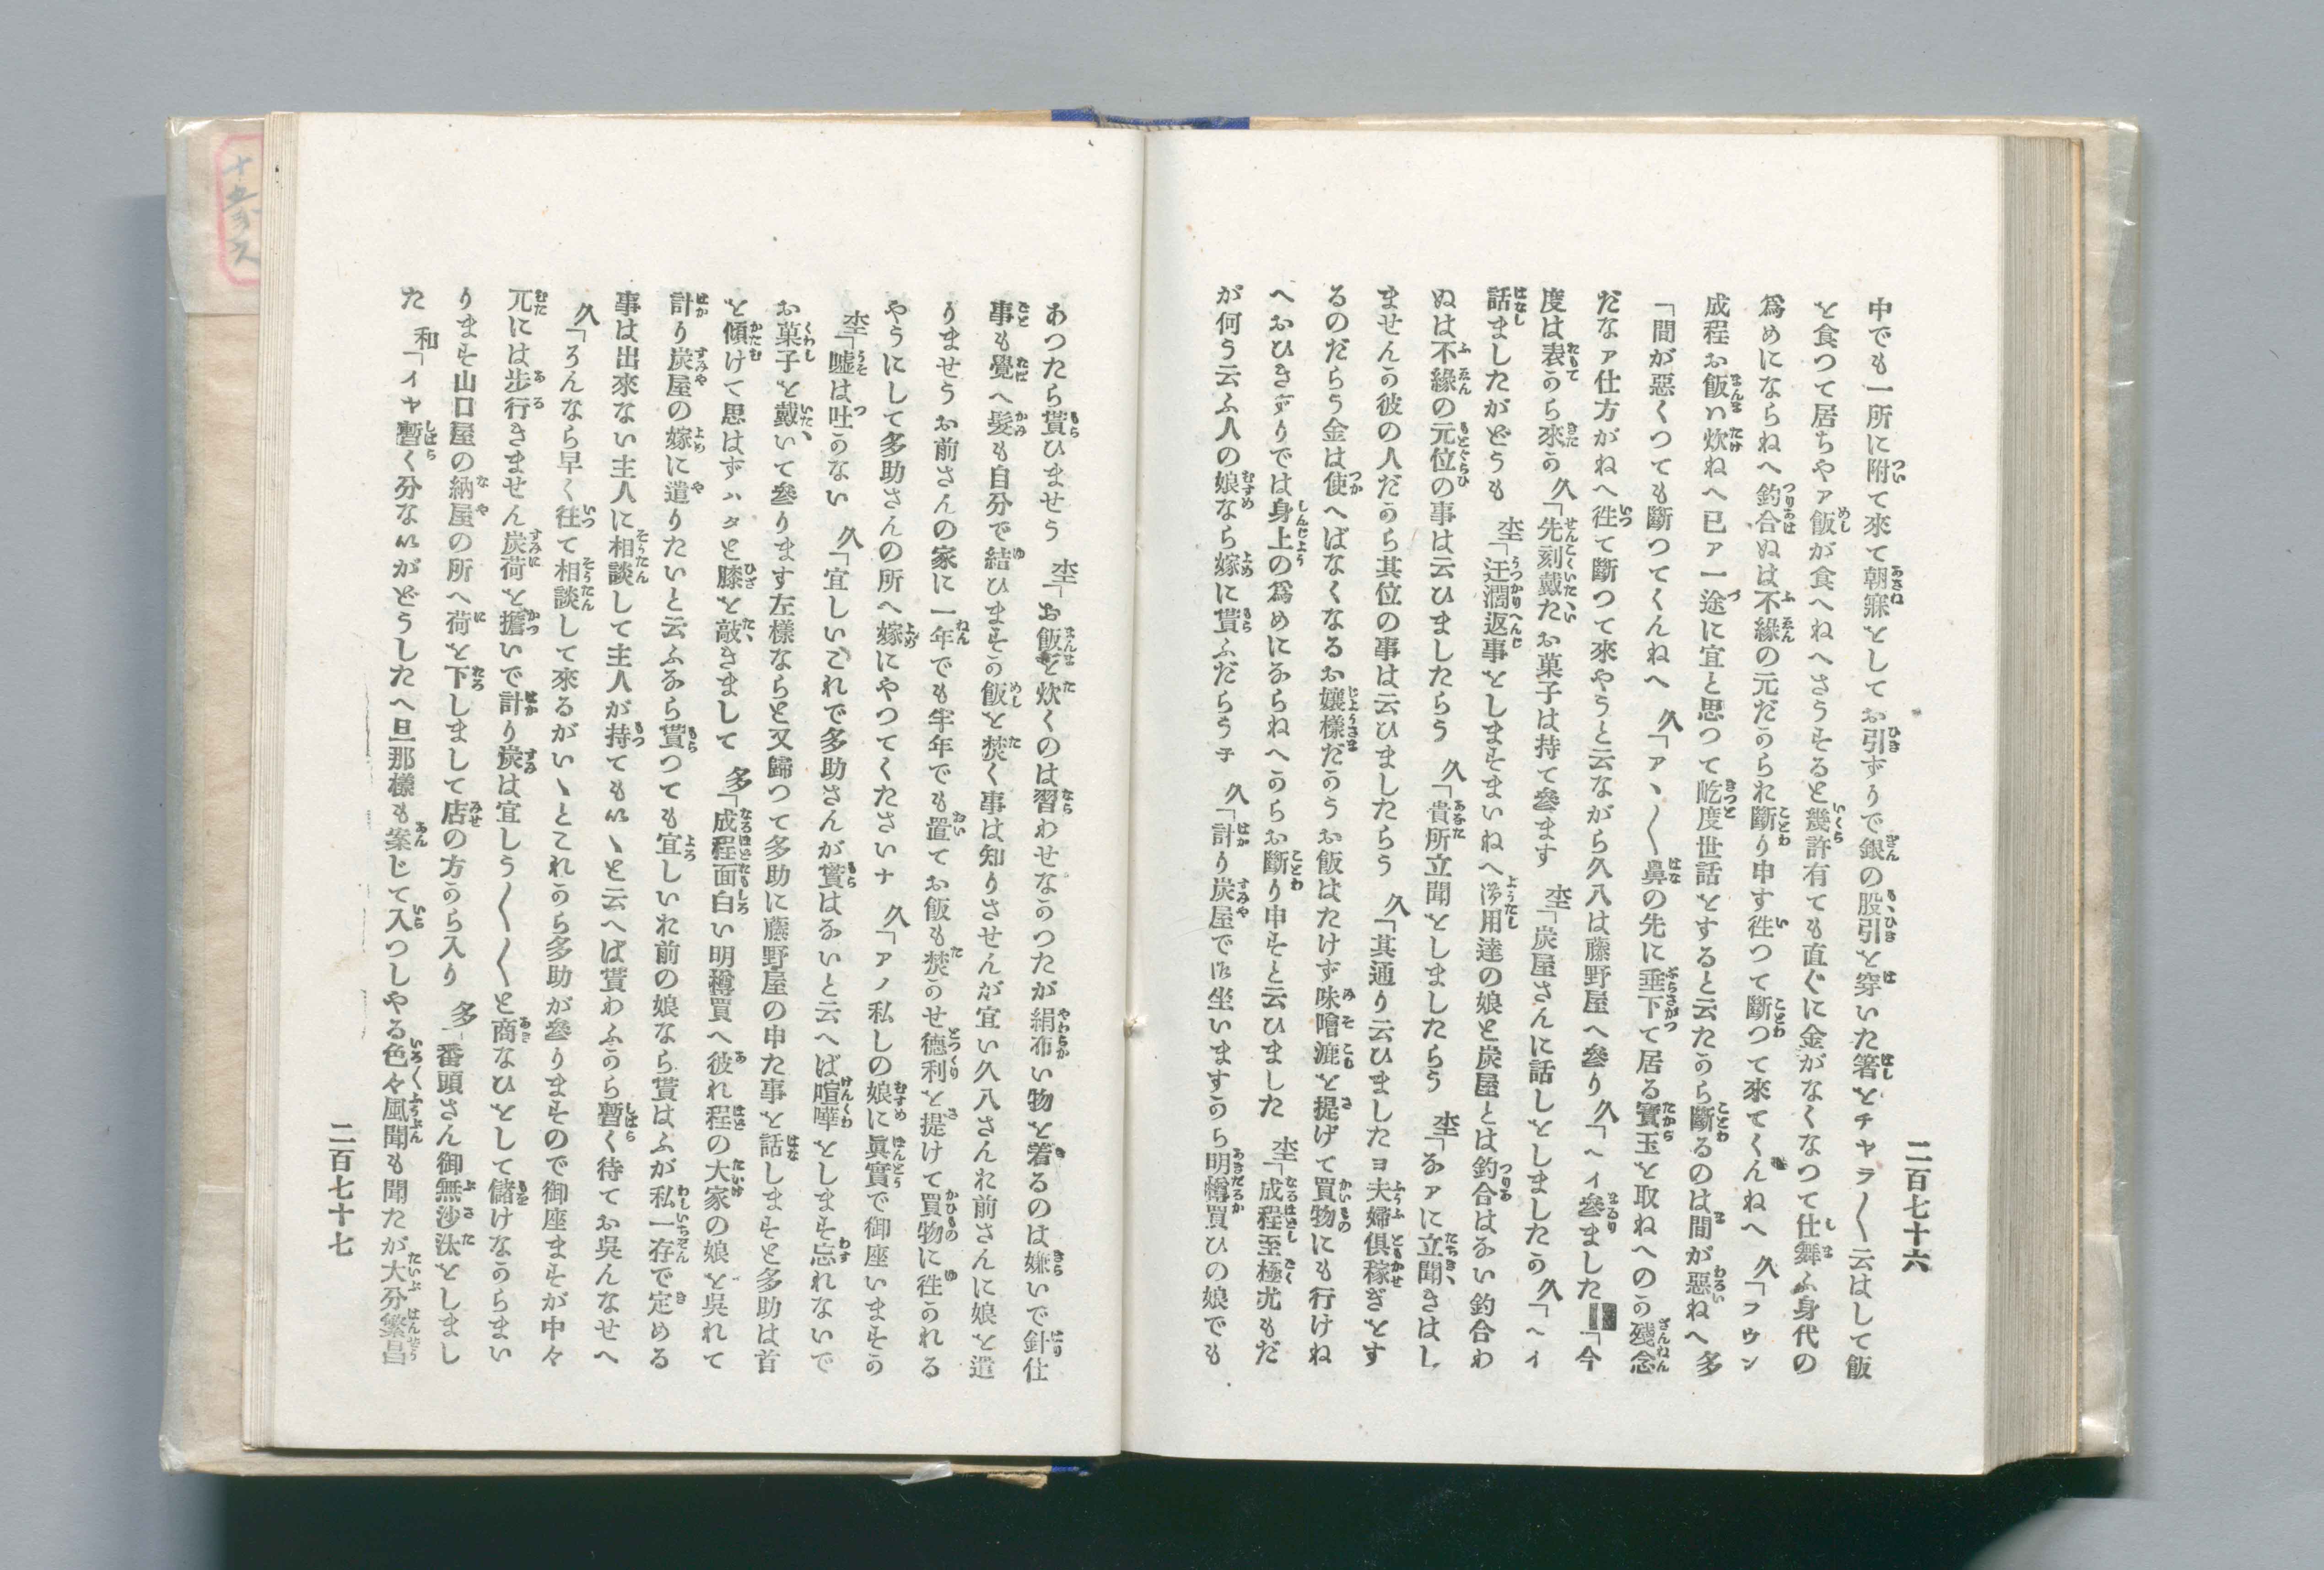 二百七十六
中でも一所に附て來て朝寐をしてお引ずりで銀の股引を穿いた箸をチヤラ〱云はして飯
を食つて居ちやァ飯が食へねへさうすると幾許有ても直ぐに金がなくなつて仕舞ふ身代の
爲めにならねへ釣合ぬは不縁の元だからお斷り申す徃つて斷つて來てくんねへ　久「フウン
成程お飯は炊ねへ已ァ一途に宜と思つて屹度世話をすると云たから斷るのは間が惡ねへ多
「間が惡くつても斷つてくんねへ　久「アヽ〱鼻の先に垂下て居る寳玉を取ねへのか殘念
だなァ仕方がねへ徃て斷つて來やうと云ながら久八は藤野屋へ參り　久「ヘイ參りました　「今
度は表から來か　久「先刻戴たお菓子は持て參ます　杢「炭屋さんに話しをしましたか　久「ヘイ
話ましたがどうも　杢「迂濶返事をしますまいねへ御用達の娘と炭屋とは釣合はない釣合わ
ぬは不縁の元位の事は云ひましたらう　久「貴所立聞をしましたらう　杢「なァに立聞きはし
ませんか彼の人だから其位の事は云ひましたらう　久「其通り云ひましたヨ夫婦倶稼ぎをす
るのだらう金は使へばなくなるお孃樣だからお飯はたけず味噌漉を提げて買物にも行けね
へおひきずりでは身上の爲めにならねへからお斷り申すと云ひました　杢「成程至極尤もだ
が何う云ふ人の娘なら嫁に貰ふだらうチ　久「計り炭屋で御坐いますから明樽買ひの娘でも
あつたら貰ひませう　杢「お飯を炊くのは習わせなかつたが絹布い物を着るのは嫌いで針仕
事も覺へ髮も自分で結ひますか飯を焚く事は知りませんが宜い久八さんお前さんに娘を遣
りませうお前さんの家に一年でも半年でも置てお飯も焚かせ德利を提けて買物に徃かれる
やうにして多助さんの所へ嫁にやつてくたさいナ　久「アノ私しの娘に眞實で御座いますか
杢「嘘は吐かない　久「宜しいこれで多助さんが貰はないと云へば喧嘩をします忘れないで
お菓子を戴いて參ります左樣ならと又歸つて多助に藤野屋の申た事を話しますと多助は首
を傾けて思はずハタと膝を敲きまして　多「成程面白い明樽買へ彼れ程の大家の娘を呉れて
計り炭屋の嫁に遣りたいと云ふなら貰つても宜しいお前の娘なら貰はふが私一存で定める
事は出來ない主人に相談して主人が持てもいヽと云へば貰わふから暫く待てお呉んなせへ
久「そんなら早く徃て相談して來るがいヽとこれから多助が參りますので御座ますが中々
兀には歩行きません炭荷を擔いで計り炭は宜しう〱〱と商なひをして儲けながらまい
ります山口屋の納屋の所へ荷を下しまして店の方から入り　多「番頭さん御無沙汰をしまし
た　和「イヤ暫く分ないがどうしたへ旦那樣も案じて入つしやる色々風聞も聞たが大分繁昌
二百七十七